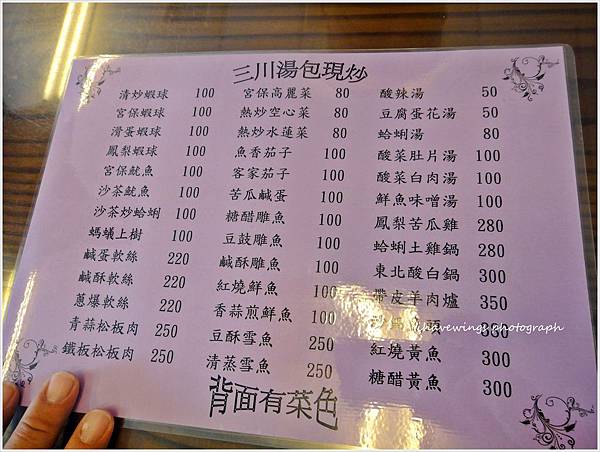 三川湯包現炒
清炒蝦球 100
宮保蝦球 100
滑蛋蝦球 100
鳳梨蝦球 100
宮保魷魚 100
沙茶魷魚 100
沙茶炒蛤蜊 100
螞蟻上樹 100
鹹蛋軟絲 220
鹹酥軟絲 220
蔥爆軟絲 220
青蒜松板肉 250
鐵板松板肉 250
宮保高麗菜 80
熱炒空心菜 80
熱炒水蓮菜 80
魚香茄子 100
客家茄子 100
苦瓜鹹蛋 100
糖醋雕魚 100
豆鼓雕魚 100
鹹酥雕魚 100
紅燒鮮魚 100
香蒜煎鮮魚 100
豆酥雪魚 250
清蒸雪魚 250
酸辣湯 50
豆腐蛋花湯 50
蛤蜊湯 80
酸菜肚片湯 100
酸菜白肉湯 100
鮮魚味噌湯 100
鳳梨苦瓜雞 280
蛤蜊土雞鍋 280
東北酸白鍋 300
帶皮羊肉爐 350
頭
紅燒黃魚 300
糖醋黃魚 300
背面有菜色
ihavewings photograph